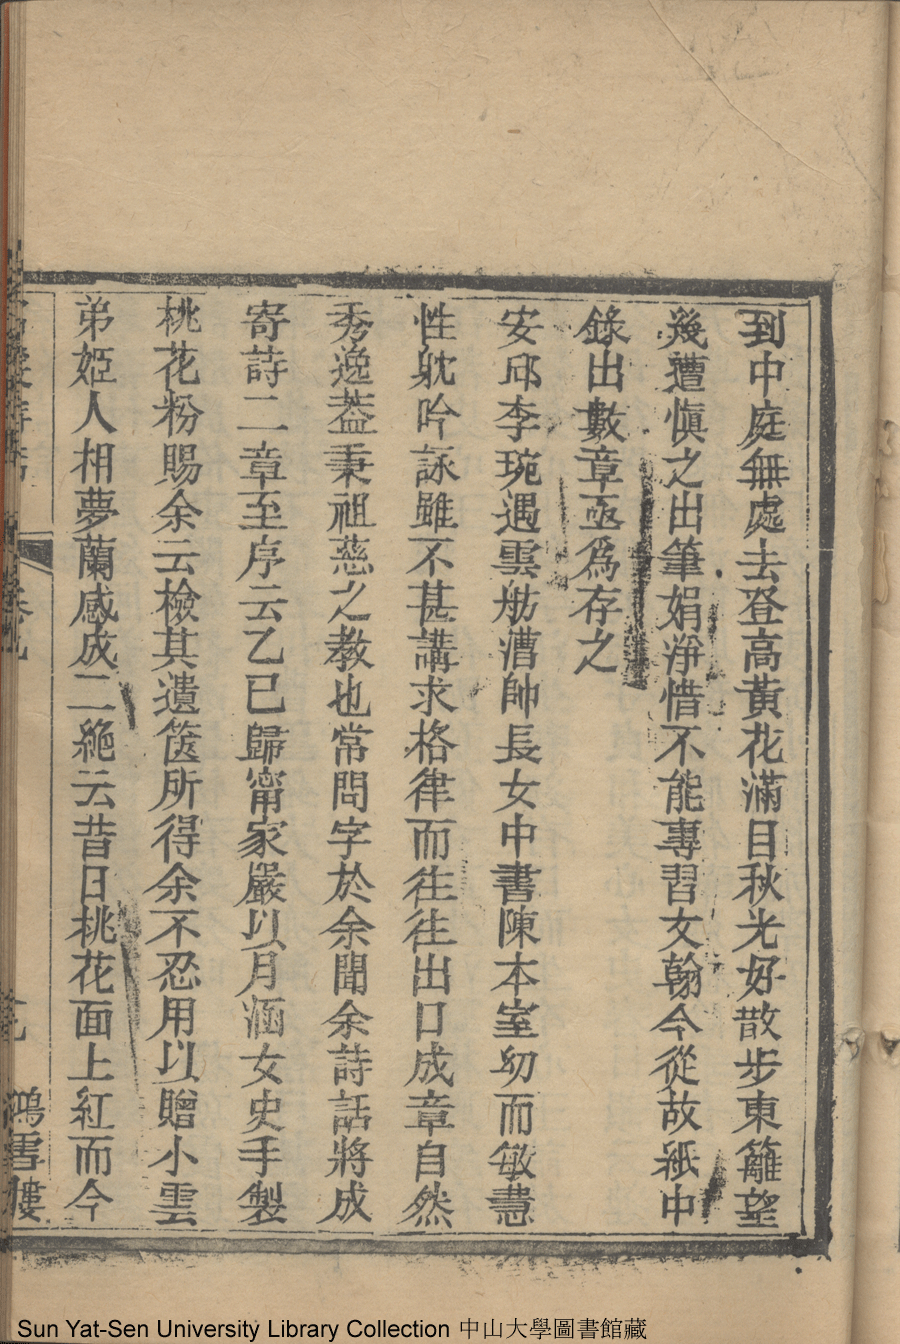 到中庭無處去登高黃花滿目秋光好散步東籬望
幾遭愼之出筆娟淨惜不能專習女翰今從故紙中
錄出數章亟爲存之
安邱李琬遇雲舫漕帥長女中書陳本室幼而敏慧
性躭吟詠雖不甚講求格律而往往出口成章自然
秀逸葢秉祖慈之教也常問字於余聞余詩話將成
寄詩二章至序云乙巳歸甯家嚴以月涵女史手製
桃花粉賜余云檢其遺篋所得余不忍用以贈小雲
弟姬人相夢蘭感成二絶云昔日桃花面上紅而今
鴻雪樓
Sun Yat-Sen University Library Collection 中山大學圖書館藏